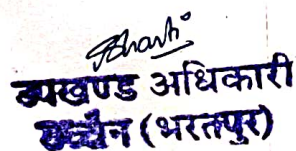 Bharti
उपखण्ड अधिकारी
उच्चैन (भरतपुर)